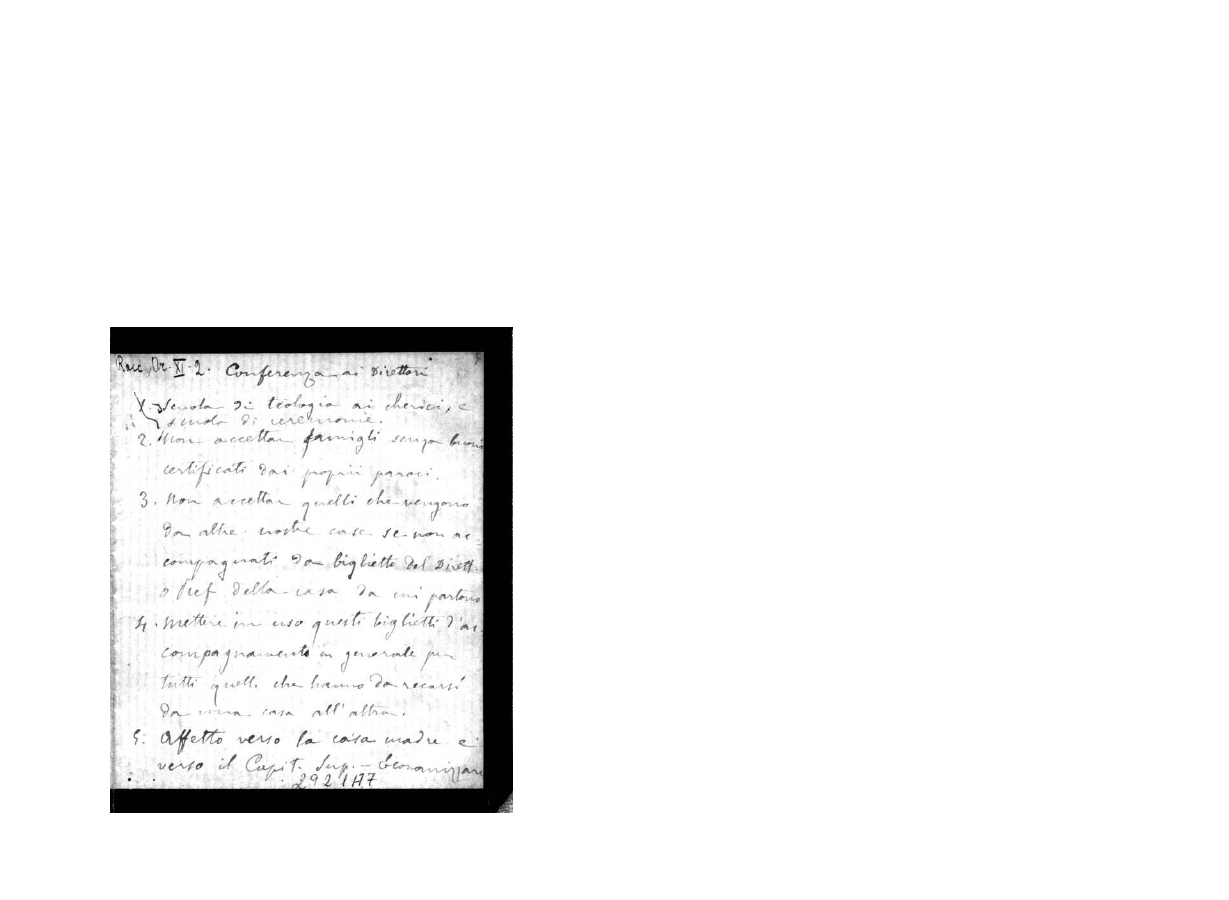 Racc. Or. XI-2. Conferenza ai Direttori
1. Scuola di teologia ai cherici, e
scuola di ceremonie.
2. Non accettar famigli senza buoni
certificati dai proprii paroci.
3. Non accettar quelli che vengono
da altre nostre case se non ac-
compagnati da biglietto del Dirett.
o Pref della casa da cui partono
4. Mettere in uso questi biglietti d'ac-
compagnamento in generale per
tutti quelli che hanno da recarsi
da una casa all'altra.
5. Affetto verso la casa madre e
verso il Capit. Sup. - Economizzare
292